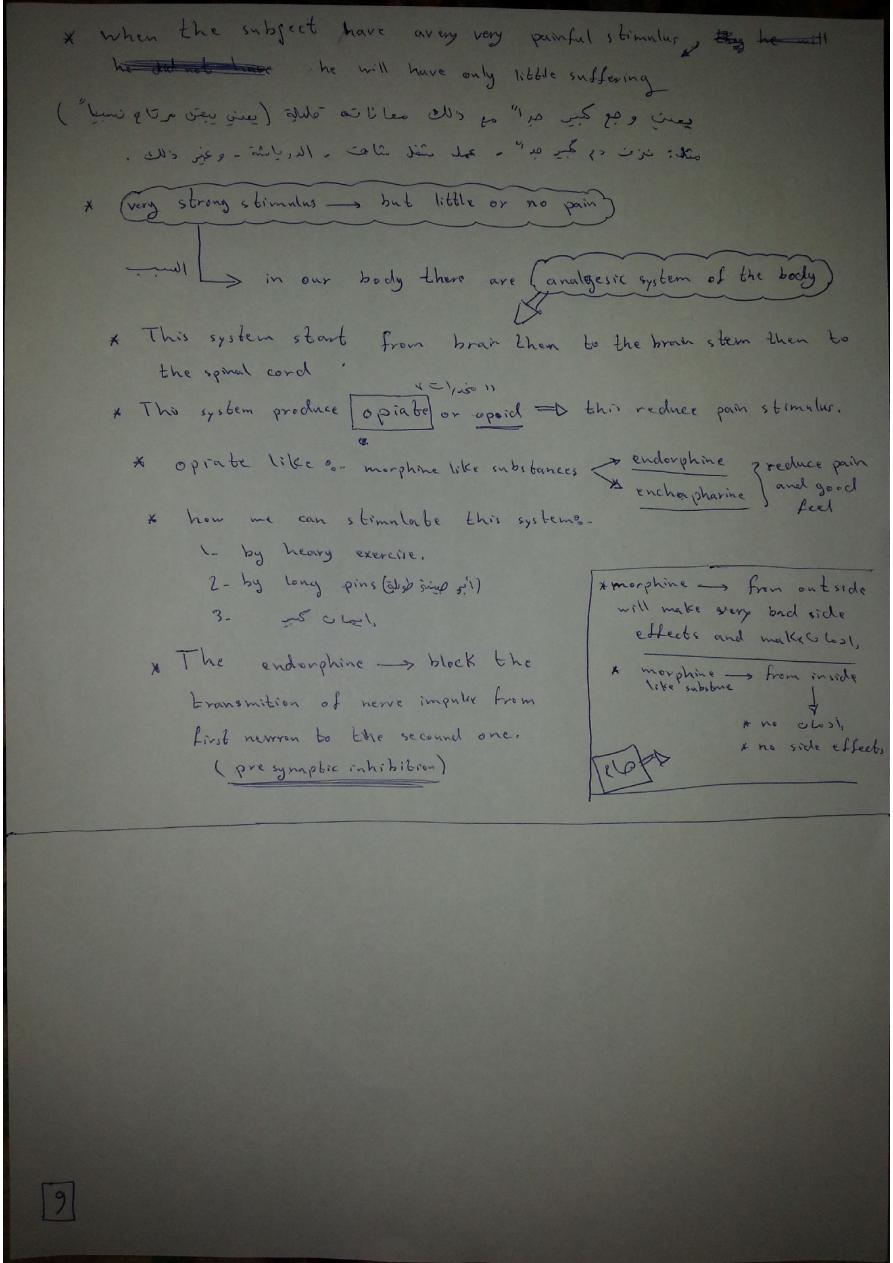 * when the subject have avery very painful stimulus,
he will have only little suffering
يعني وجع كبير جداً مع ذلك معاناته قليلة (يعني يبقى مرتاح نسبياً)
مثلا: نزف دم كبير جداً - عمل شغل شاق - الدرباشة - وغير ذلك .
* very strong stimulus → but little or no pain
السبب
in our body there are analgesic system of the body
* This system start from brain then to the brain stem then to
the spinal cord
"مخدرات"
* This system produce opiate or opoid ⇒ this reduce pain stimulus.
* opiate like :- morphine like substances
endorphine
enchapharine
reduce pain
and good
feel
* how we can stimulate this system:-
1- by heavy exercise.
2- by long pins (ابر صينية طويلة)
3- ايمان كبير
* The endorphine → block the
transmition of nerve impulse from
first neuron to the secound one.
(presynaptic inhibition)
* morphine → from outside
will make very bad side
effects and make ادمان
* morphine → from inside
like substane
* no ادمان
* no side effects
هام
9